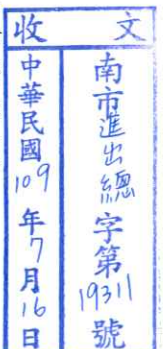 收文
南市進出總字第19311號
中華民國109年7月16日